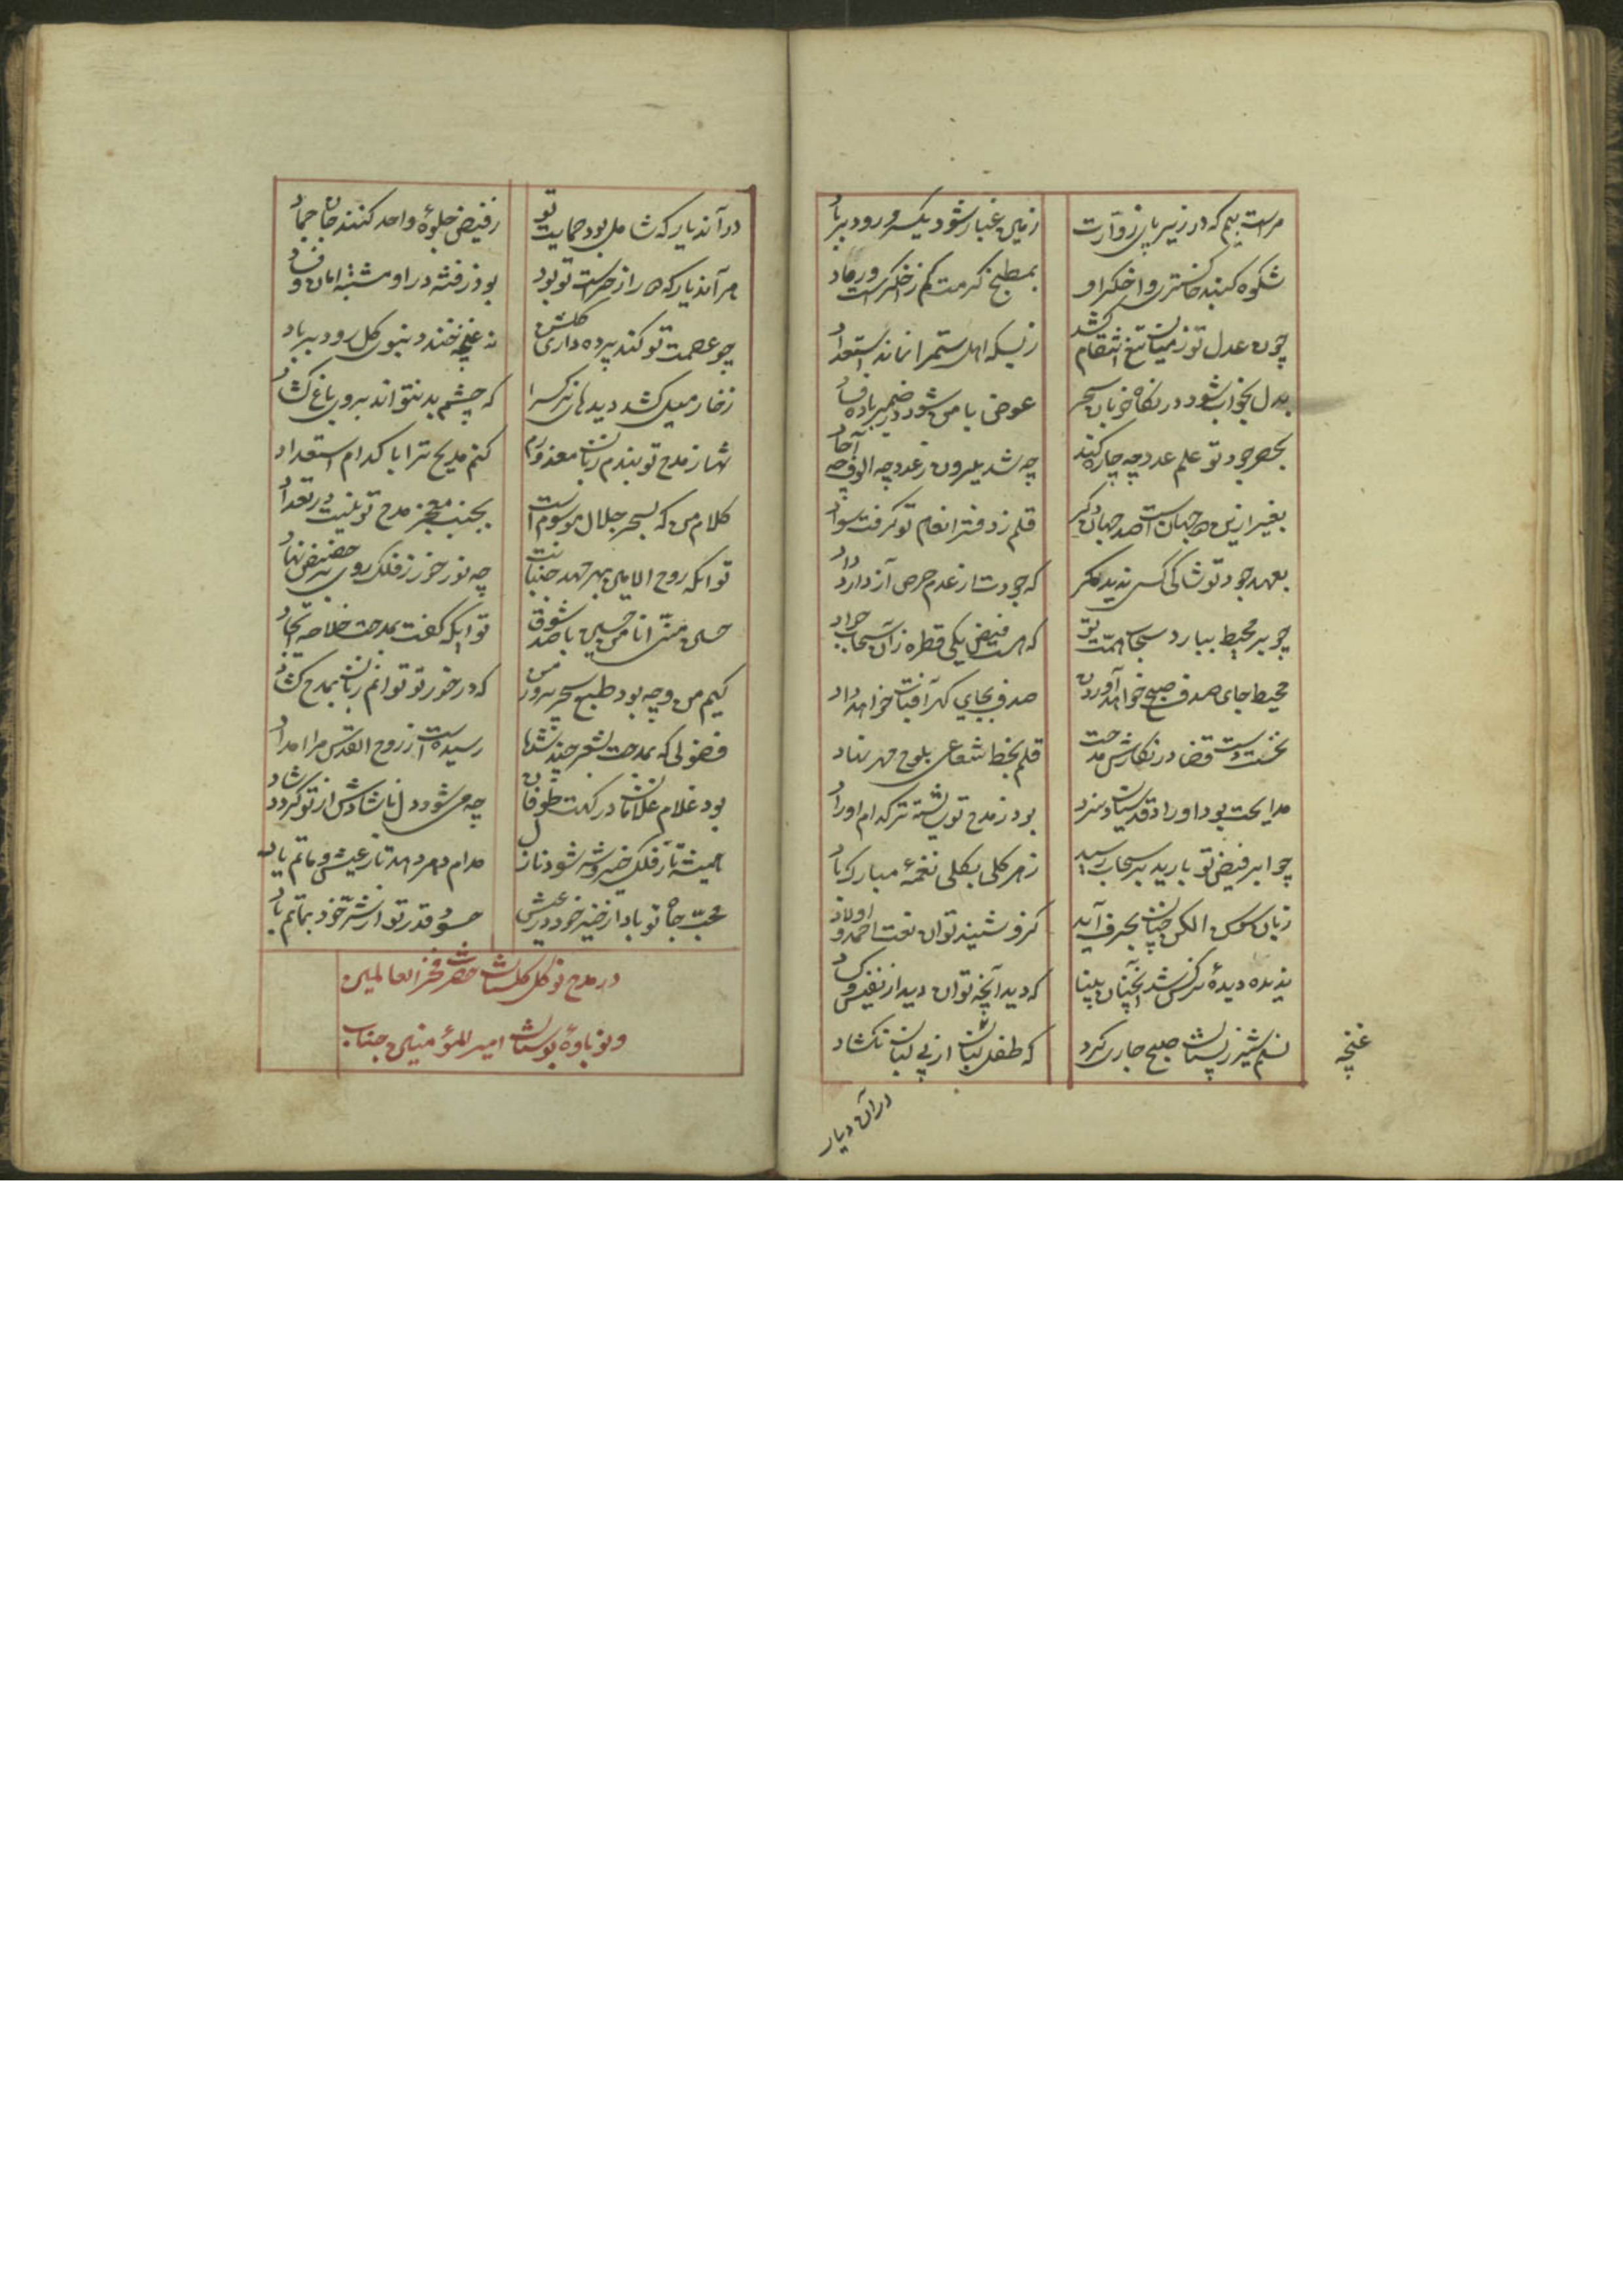 زمین غبار شود یکسر و رود بر باد
شکوه کنبد خاکستر و اخکر او
بمطبخ کرمت کم ز اخکرست و رماد
چون عدل تو ز میان تیغ انتقام کشد
ز بسکه اهل ستم را نماند استعداد
بدل بخواب شود در نکاه خوبان سحر
عوض شود در ضمیر باده فساد
بحصر جود تو علم عدد چه چاره کند
چه شد بیرون ز عدد چه الوف چه آحاد
بغیر ازین دو جهانست صد جهان دکر
قلم ز دفتر انعام تو کرفت سواد
بعهد جود تو شاکی کسی ندید مکر
که جودت از عدم حرص آز دارد داد
چو بر محیط ببارد سحاب همت تو
که هست فیض یکی قطره زان سحاب جواد
محیط جای صدف صبح خواهد آوردن
صدف بجای کهر آفتاب خواهد داد
نخست دست قضا در نکارش مدحت
قلم بخط شعاعی بلوح مهر نهاد
مدایحت بود اوراد قدسیان و سزد
بود ز مدح تو شایسته تر کدام اوراد
چو ابر فیض تو بارید بر سحاب رسید
ز هر کلی بکلی نغمهٔ مبارک باد
زبان سوسن الکن چنان بحرف آید
کزو شنید توان نعت احمد و اولاد
ندیده دیدهٔ نرکس شد آنچنان بینا
که دید آنچه توان دید از نفیس و کساد
نسیم شیر ز پستان صبح جاری کرد
که طفل از پی لبان نکشاد
غنچه
در آن دیار
در آندیار که شامل بود حمایت تو
ز فیض جلوهٔ واحد کنند جان جماد
هر آندیار که دور از حراست تو بود
بود ز فتنه در او مشتبه امان و فساد
چو عصمت تو کند پرده داری کلشن
نه غنچه خندد نی بوی کل رود بر باد
ز خار میل کشد دیدهای نرکس را
که چشم بد نتواند بروی باغ کشاد
شها ز مدح تو بندم زبان معذورم
کنم مدیح ترا با کدام استعداد
کلام من که بسحر حلال موسوم است
بجنب معجز مدح تو نیست در تعداد
توانکه روح الامین بهر مهد جنبانیت
چه نور خور ز فلک روی بر حضیض نهاد
حسین منی انا من حسین با صد شوق
توانکه کفت بمدحت خلاصه ایجاد
کیم من و چه بود طبع سحر پرور من
که در خور تو توانم زبان بمدح کشاد
فضولی که بمدحت بشعر چند نشد
رسیده است ز روح القدس مرا امداد
بود غلام غلامان درکهت طوفان
چه میشود دل ناشادش از تو کردد شاد
همیشه تا ز فلک خیر و شر شود نازل
مدام دهر دهد تا ز عیش و ماتم یاد
محب جاه تو بادا ز خیر خود در عیش
حسود قدر تو از شر خود بماتم باد
در مدح نوکل کلستان حضرت فخر العالمین
و نوباوهٔ بوستان امیر المؤمنین جناب